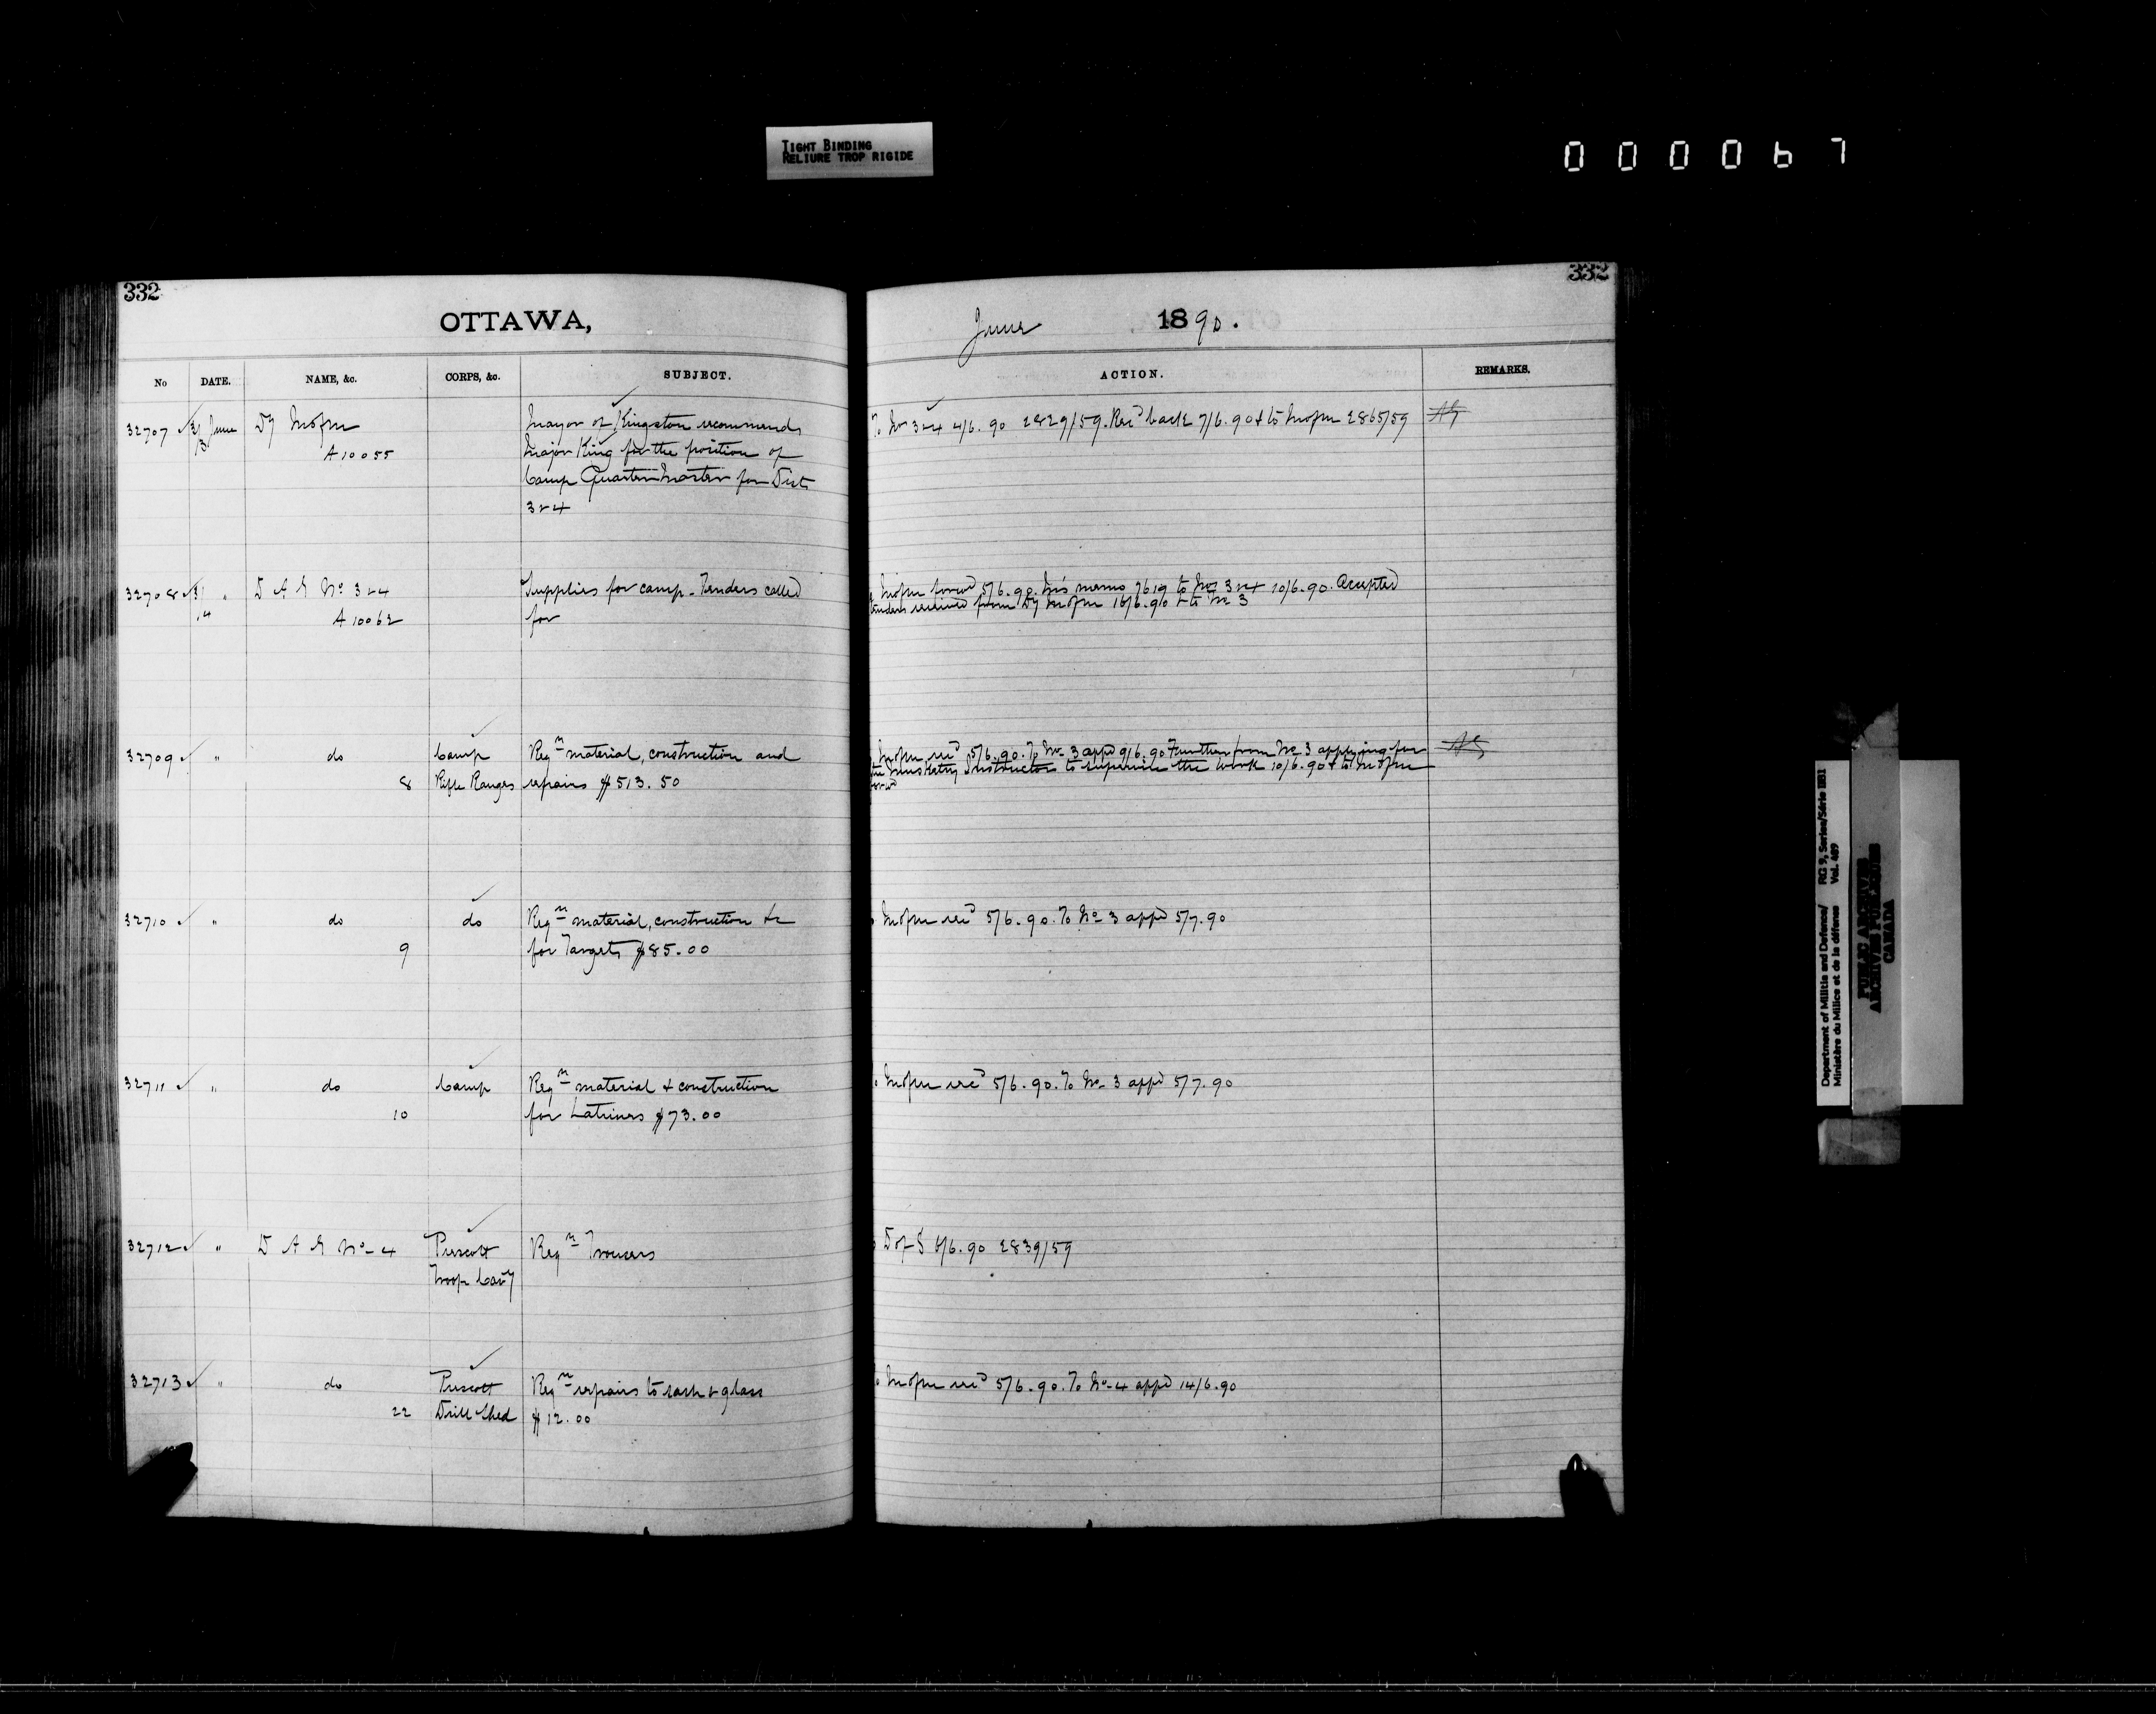 TIGHT BINDING
RELIURE TROP RIGIDE
000067
332
332
OTTAWA,
June 1890.
No DATE. NAME, &c. CORPS, &c. SUBJECT. ACTION. REMARKS.
32707 June Dy Mofm Mayor of Kingston recommends
A10055 Major King for the position of
Camp Quarter Master for Dist
3 & 4
To Nos 3 & 4 4/6.90 2829/59. Recd back 7/6.90 & to Mofm 2865/59
32708 " D A G No 3 & 4 Supplies for camp - Tenders called
A10062 for
Mofm forwd 5/6.90. His memo 7619 to Nos 3 & 4 10/6.90. Accepted
tenders received from Dy Mofm 16/6.90 & to No 3
32709 " do Camp Reqn material, construction and
8 Rifle Ranges repairs $513.50
Mofm recd 5/6.90. To No 3 appd 9/6.90 Further from No 3 applying for
the Musketry Instructor to supervise the work 10/6.90 & to Mofm
forwd
32710 " do do Reqn material, construction &c
9 for Targets $85.00
Mofm recd 5/6.90. To No 3 appd 5/7.90
32711 " do Camp Reqn material & construction
10 for Latrines $73.00
Mofm recd 5/6.90. To No 3 appd 5/7.90
32712 " D A G No 4 Prescott Reqn Trousers
Troop Cavy
D of S 6/6.90 2839/59
32713 " do Prescott Reqn repairs to sash & glass
22 Drill Shed $12.00
Mofm recd 5/6.90. To No 4 appd 14/6.90
Department of Militia and Defence/ RG 9, Series/Série IIB1
Ministère du Milice et de la défense Vol. 489
PUBLIC ARCHIVES
ARCHIVES PUBLIQUES
CANADA